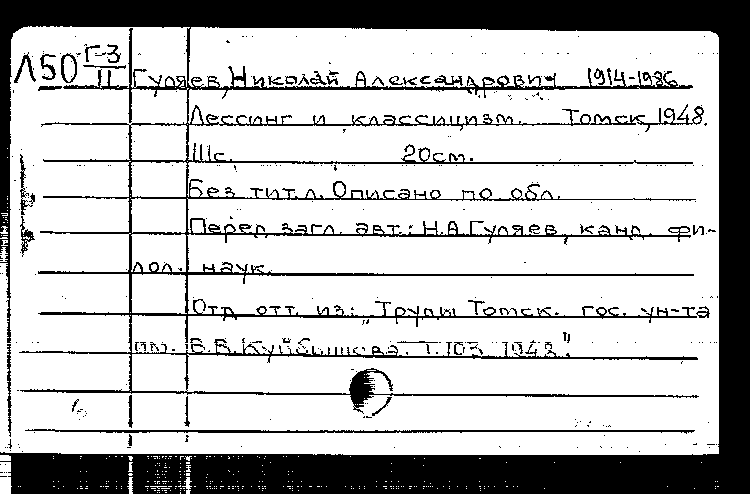 Л50 Г-3/II Гуляев, Николай Александрович 1914-1986
Лессинг и классицизм. Томск, 1948.
111с. 20см.
Без тит.л. Описано по обл.
Перед загл. авт.: Н.А.Гуляев, канд. фи-
лол. наук.
Отд. отт. из: „Труды Томск. гос. ун-та
им. В.В.Куйбышева. Т.103 1948."